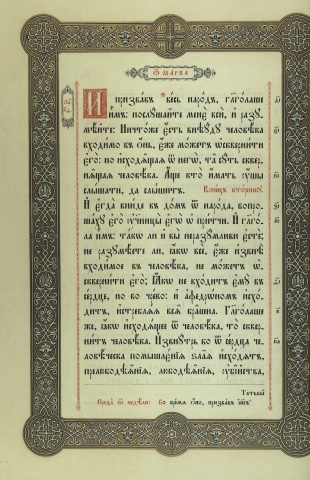 Ѿ МАРКА
И призвавъ весь народъ, глаголаше
имъ: послушайте менє вси, и разу-
мѣйте: Ничтоже єсть внѣуду человѣка
входимо въ онь, єже можетъ сквернити
єго: но исходящая ѿ негѡ, та суть сквер-
нящая человѣка. Аще кто имать уши
слышати, да слышитъ. Конецъ вторнику.
И єгда вниде въ домъ ѿ народа, вопро-
шаху єго ученицы єгѡ ѡ притчи. И глаго-
ла имъ: такѡ ли и вы неразумливи єсте;
не разумѣете ли, якѡ все, єже извнѣ
входимое въ человѣка, не можетъ
сквернити єго; Якѡ не входитъ єму въ
сердце, но во чрево: и афедрономъ исхо-
дитъ, истребляя вся брашна. Глаголаше
же, якѡ исходящее ѿ человѣка, то сквер-
нитъ человѣка. Извнутрь бо ѿ сердца че-
ловѣческа помышлєнїя злая исходятъ,
прелюбодѣянїя, любодѣянїя, убїйства,
Татьбы
Среда недѣли: Во время ѻно, призвавъ